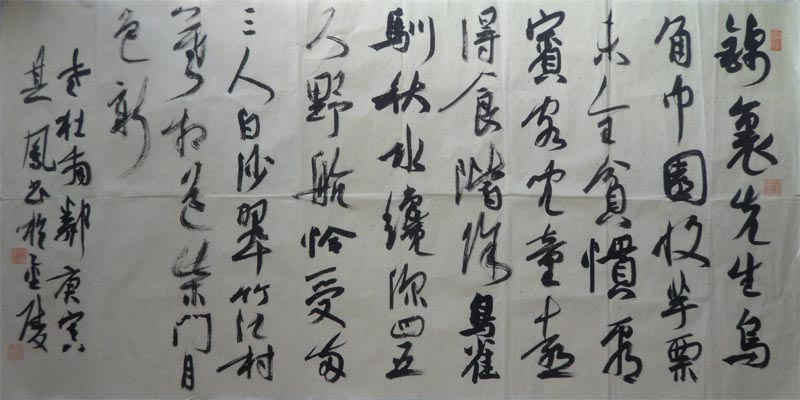 錦裏先生烏
角巾園收芋栗
未全貧慣看
賓客兒童喜
得食階除鳥雀
馴秋水纔深四五
尺野航恰受兩
三人白沙翠竹江村
暮相送柴門月
色新
老杜南鄰庚寅
鳳書於金陵